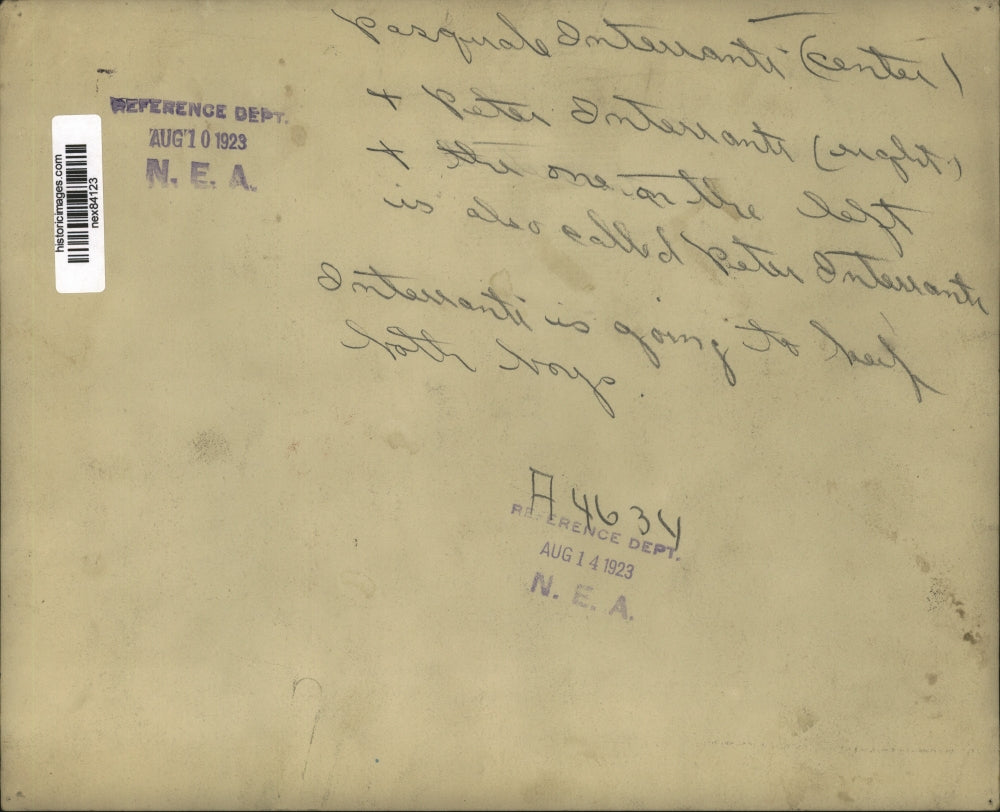 Pasquale Interranti (center)
+ Peter Interranti (right)
+ the one on the left
is also called Peter Interranti
Interranti is going to keep
both boys
REFERENCE DEPT.
AUG 10 1923
N. E. A.
historicimages.com
nex84123
A 4634
REFERENCE DEPT.
AUG 14 1923
N. E. A.